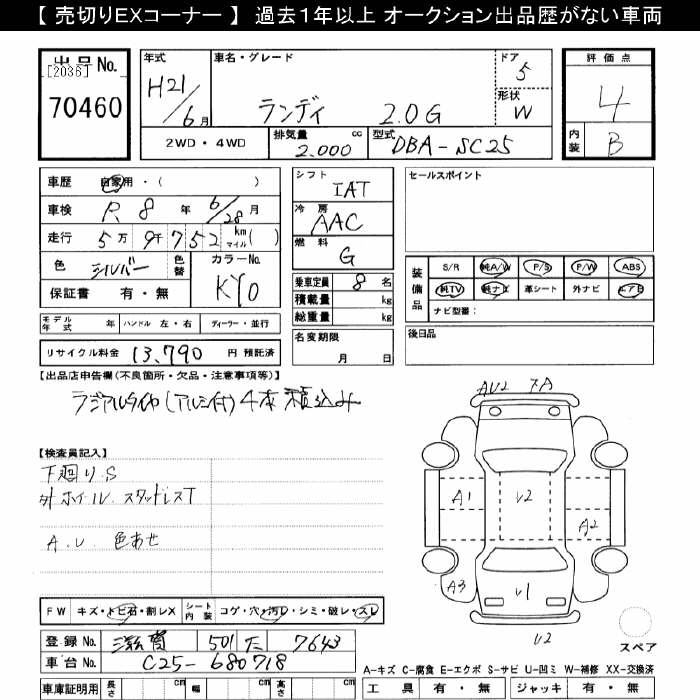 【 売切りEXコーナー 】 過去1年以上 オークション出品歴がない車両
出品 No.
[2036]
70460
年式
H21/6月
車名・グレード
ランディ 2.0G
ドア
5
形状
W
評価点
4
内装
B
2WD・4WD
排気量 2.000 cc
型式 DBA-SC25
車歴 自家用・( )
車検 R 8 年 6/28 月
走行 5万9千752 km マイル ( )
色 シルバー 色替
カラーNo.
KY0
保証書 有・無
シフト
IAT
冷房
AAC
燃料
G
乗車定員 8 名
積載量 kg
総重量 kg
セールスポイント
装備品
S/R 純A/W P/S P/W ABS
純TV 純ナビ 革シート 外ナビ エアB
ナビ型番:
モデル年式 年 ハンドル 左・右 ディーラー・並行
リサイクル料金 13,790 円 預託済
名変期限
月 日
後日品
【出品店申告欄(不良箇所・欠品・注意事項等)】
ラジアルタイヤ(アルミ付)4本積込み
【検査員記入】
下廻り S
外ホイル. スタッドレスT
A.U. 色あせ
AU2
A1
U2
A2
A3
U1
U2
スペア
FW キズ・トビ石・割レX シート内装 コゲ・穴・汚レ・シミ・破レ・スレ
登録 No. 滋賀 501 た 7643
車台 No. C25-680718
車庫証明用 長さ cm 幅 cm 高さ cm
A-キズ C-腐食 E-エクボ S-サビ U-凹ミ W-補修 XX-交換済
工具 有・無 ジャッキ 有・無